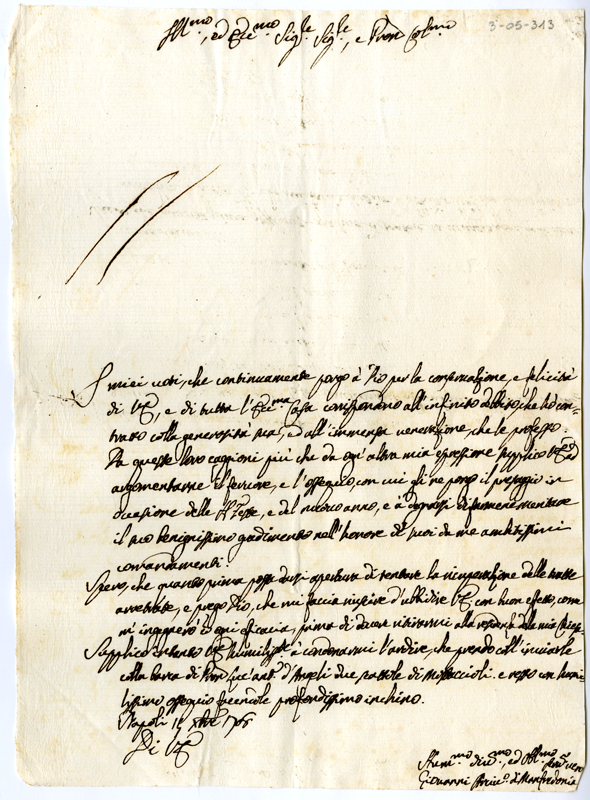 3-05-313
Ill.mo, ed Ecc.mo Sig.re Sig.re, e Pron Col.mo
I miei voti, che continuamente porgo à Dio per la conservazione, e felicità
di V.E., e di tutta l'Ecc.ma Casa corrispondono all'infinito debito, che hò con-
tratto colla generosità sua, ed all'immensa venerazione, che le professo.
Da queste loro cagioni più che da ogn'altra mia espressione supplico V.E. ad
argomentarne il fervore, e l'ossequio, con cui gli ne porgo il presaggio in
occasione delle feste, e del nuovo anno, e à degnarsi di farmene meritare
il suo benignissimo gradimento nell'honore de' suoi da me ambitissimi
comandamenti.
Spero, che quanto prima possa darsi apertura di tentare la ricuperazione delle tratte
arretrate, e prego Dio, che mi faccia riuscire d'ubbidire V.E. con buon effetto, come
m'ingegnerò con ogni efficacia, prima di dover ritirarmi alla residenza della mia Chiesa.
Supplico intanto V.E. à condonarmi l'ardire, che prendo coll'inviarle
colla barca di Pron d'Angeli due scattole di mostaccioli. e resto con humi-
lissimo ossequio facendole profondissimo inchino.
Napoli 1706
Di V.E.
Hum.mo div.mo, ed Obl.mo
Giovanni Arciv.o di Manfredonia